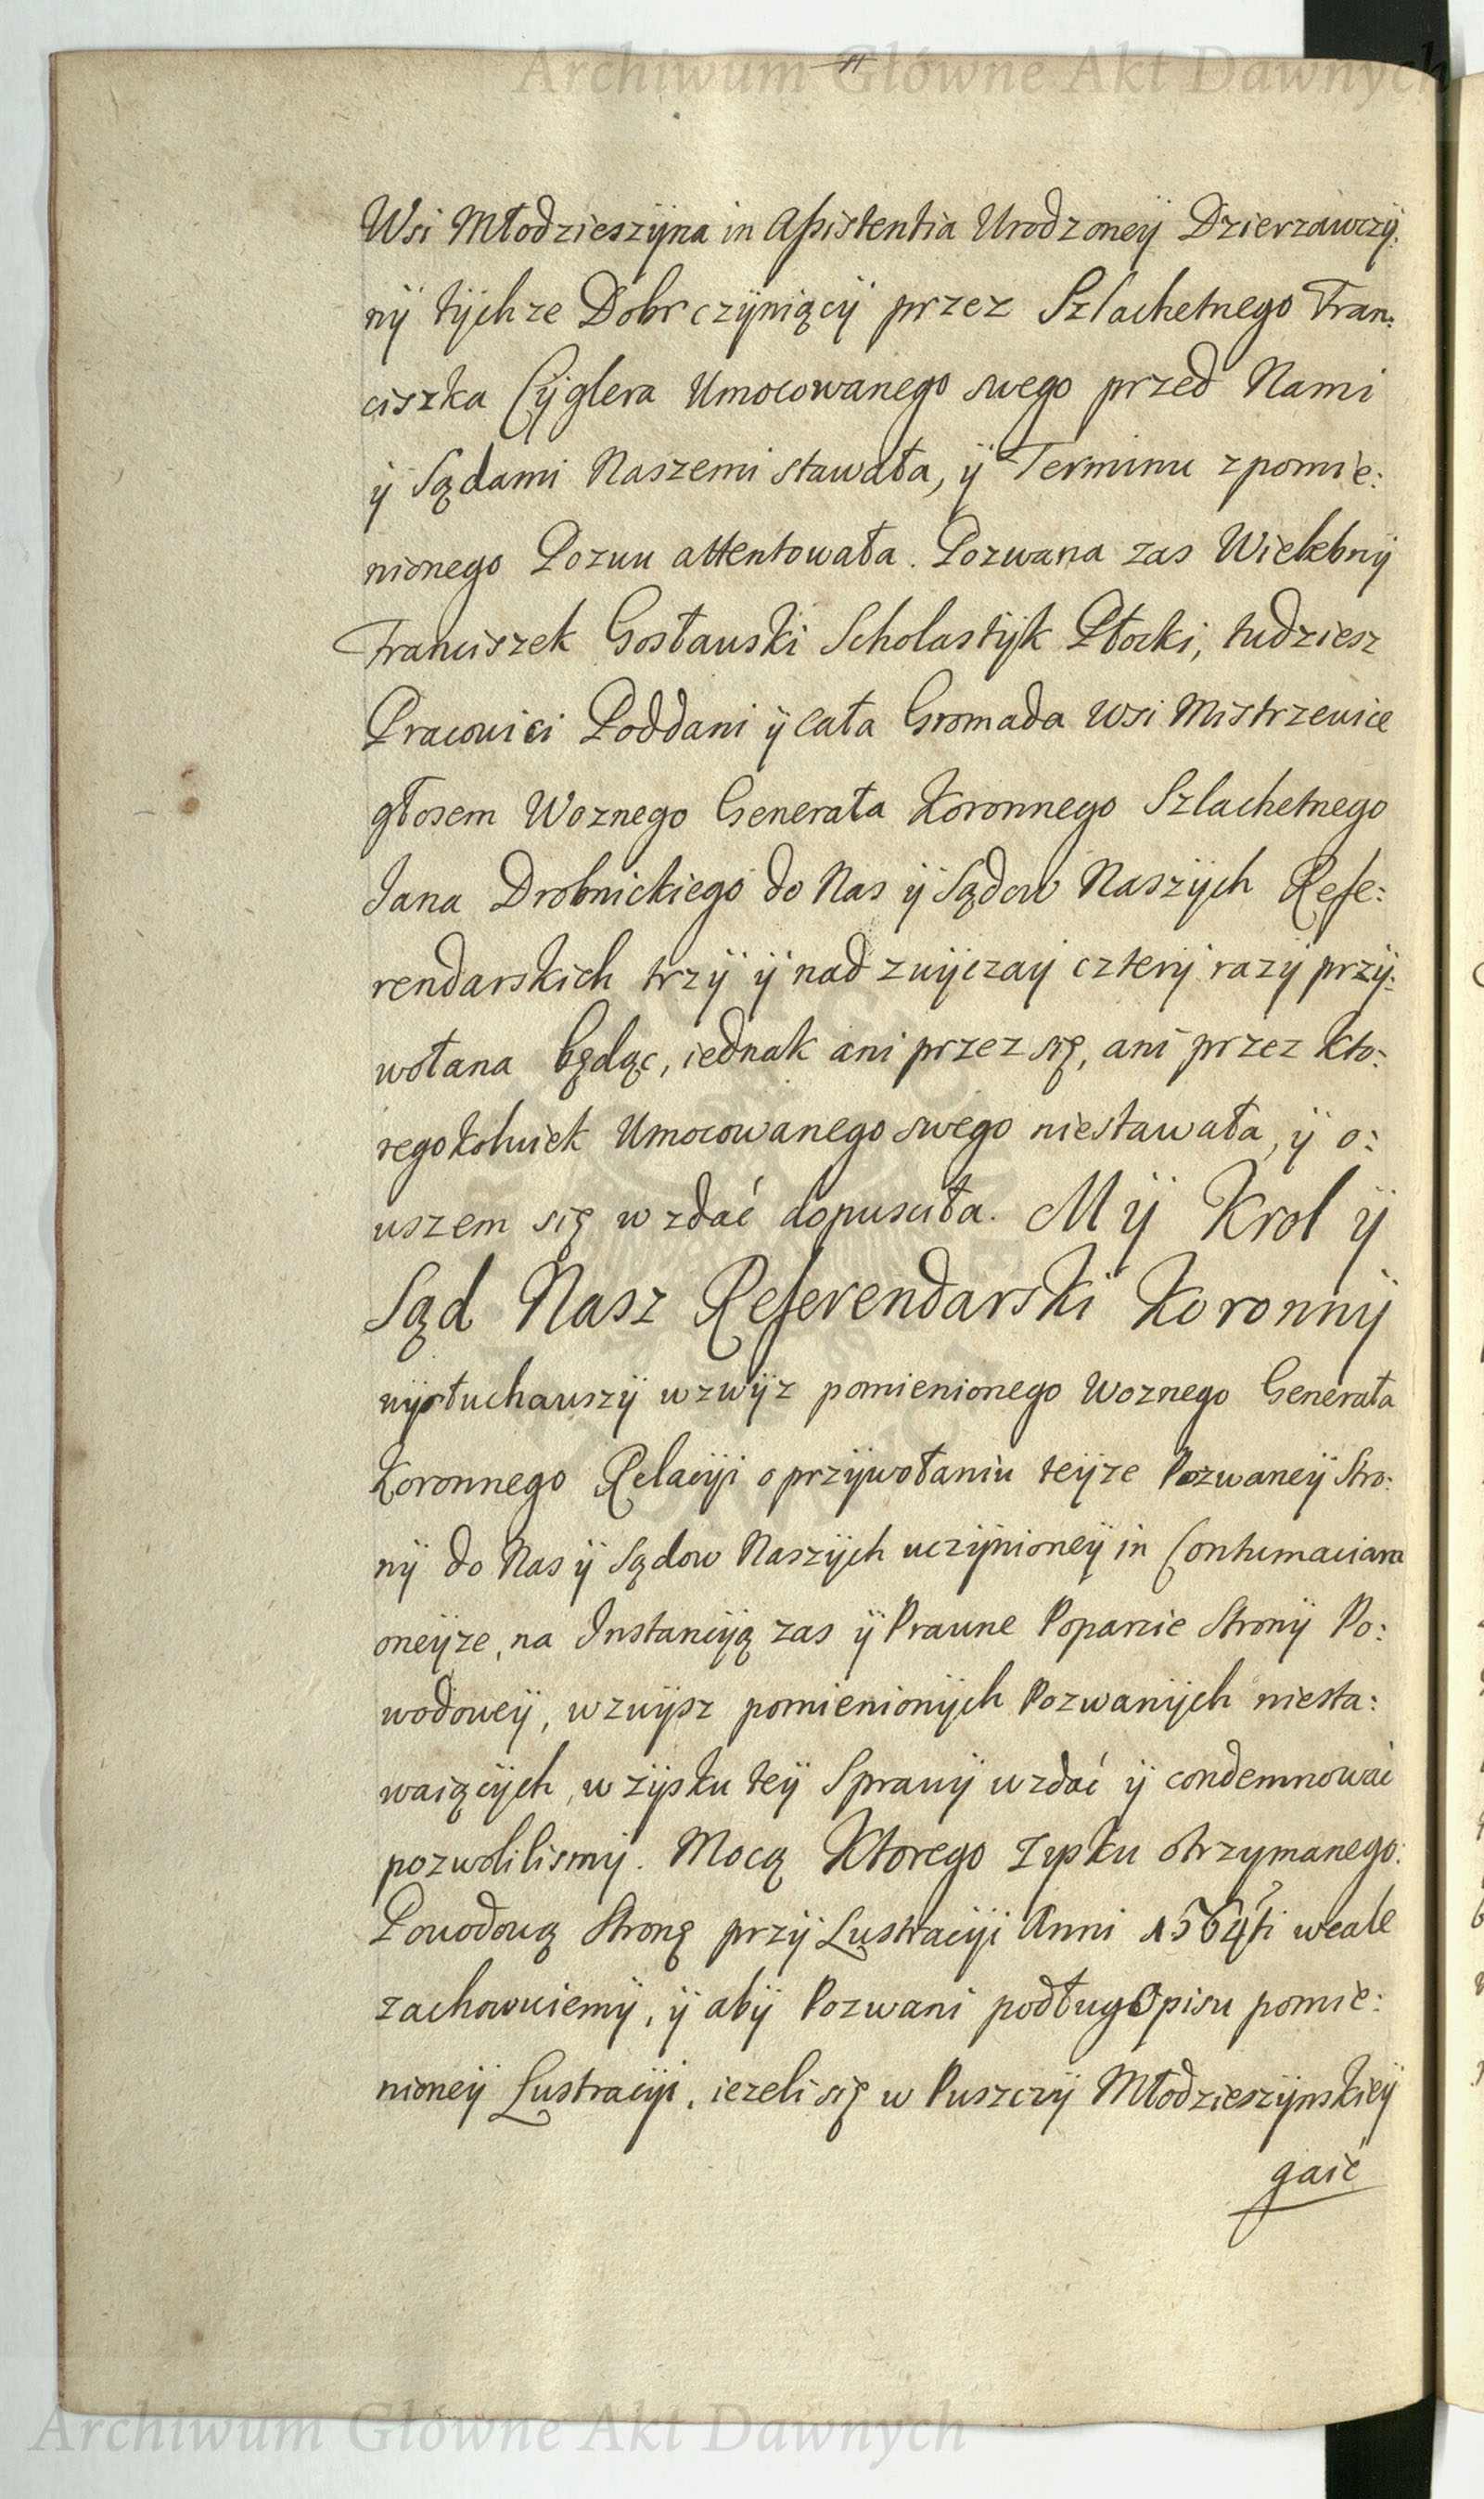 Archiwum Główne Akt Dawnych
Wsi Młodzieszÿna in Aßistentia Urodzoneÿ Dzierzawczÿ:
nÿ tÿchze Dobr czÿniącÿ przez Szlachetnego Fran:
ciszka Cÿglera Umocowanego swego przed Nami
ÿ Sądami Naszemi stawała, ÿ Terminu zpomie:
nionego Pozwu attentowała. Pozwana zas Wielebnÿ
Franciszek Gosławski Scholastÿk Płocki, tudziesz
Pracowici Poddani ÿ cała Gromada wsi Mistrzewice
głosem Woznego Generała Koronnego Szlachetnego
Jana Drobnickiego do Nas ÿ Sądow Naszÿch Refe:
rendarskich trzÿ ÿ nad zwÿczaÿ czterÿ razÿ przÿ:
wołana będąc, iednak ani przez się, ani przez kto:
regokolwiek Umocowanego swego niestawała, ÿ o:
uszem się w zdać dopusciła. Mÿ Krol ÿ
Sąd Nasz Referendarski Koronnÿ
wÿsłuchawszÿ wzwÿz pomienionego Woznego Generała
Koronnego Relacÿi o przÿwołaniu teÿze Pozwaneÿ Stro:
nÿ do Nas ÿ Sądow Naszÿch uczÿnioneÿ in Contumaciam
oneÿze, na Instancÿą zas ÿ Prawne Poparcie Stronÿ Po:
wodoweÿ, wzwÿsz pomienionÿch Pozwanÿch niesta:
waiącÿch, w zÿsku teÿ Sprawÿ wzdać ÿ condemnować
pozwolilismÿ. Mocą Ktorego zysku otrzymanego:
Powodową Stronę przÿ Lustracÿi Anni 1564ti wcale
zachowuiemÿ, ÿ abÿ Pozwani podług Opisu pomie:
nioneÿ Lustracÿi, iezeli się w Puszczÿ Młodzieszÿnskieÿ
gaić
Archiwum Główne Akt Dawnych